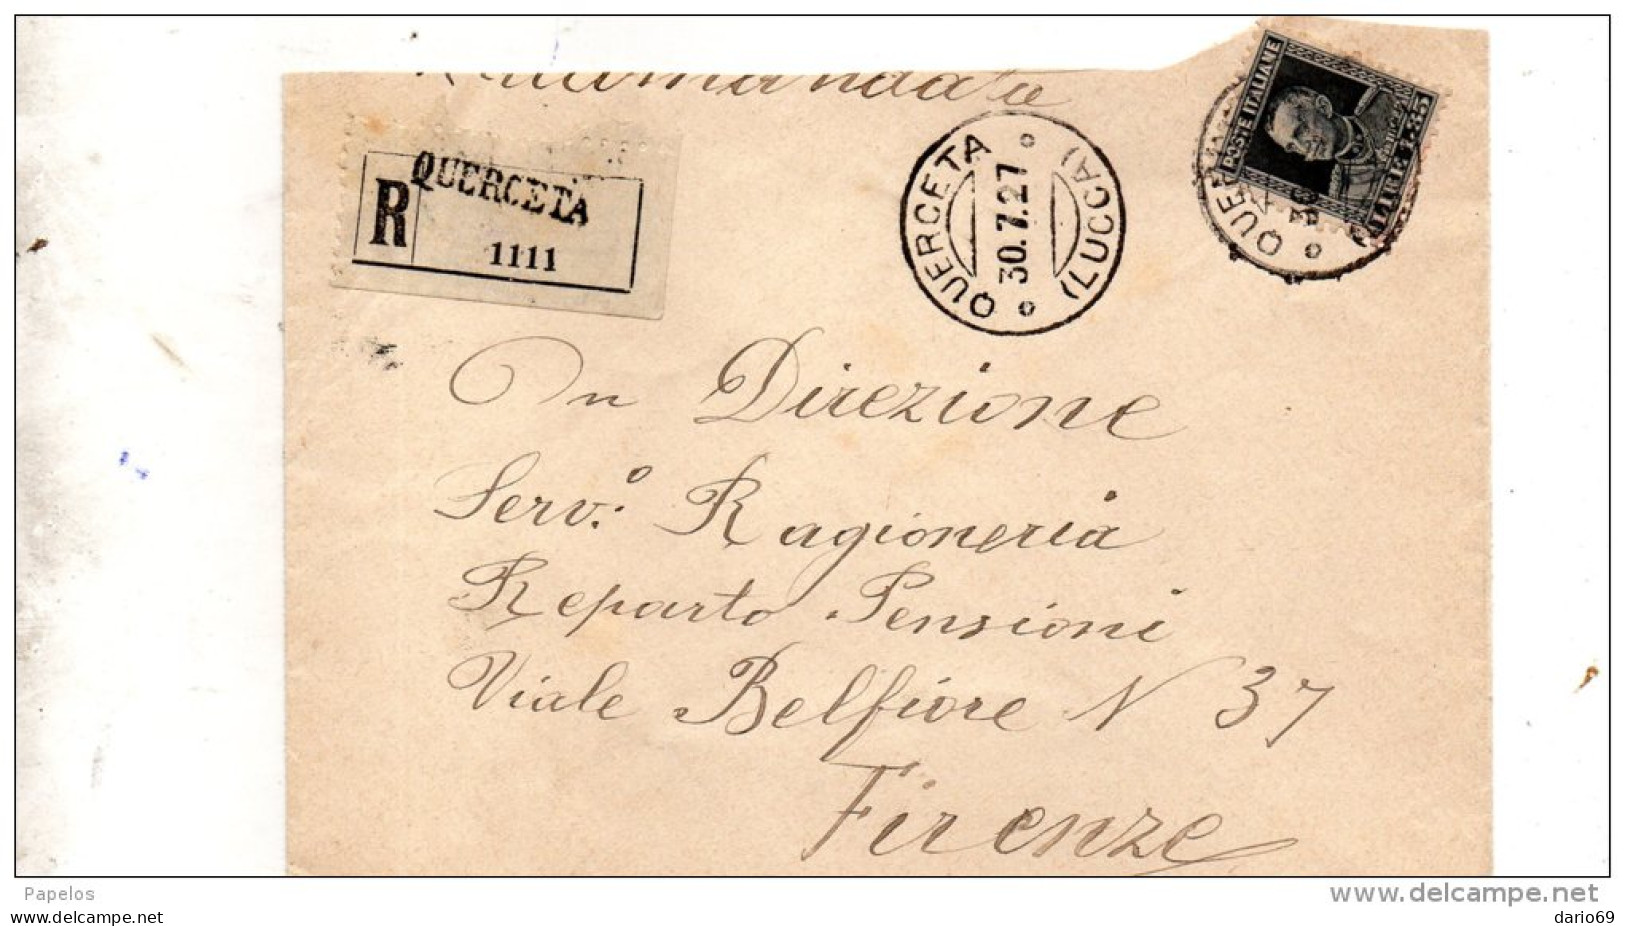 Raccomandata
QUERCETA
R
1111
QUERCETA
(LUCCA)
30.7.27
POSTE ITALIANE
LIRE 1.85
On Direzione
Serv.o Ragioneria
Reparto Pensioni
Viale Belfiore N 37
Firenze
Papelos
www.delcampe.net
dario69